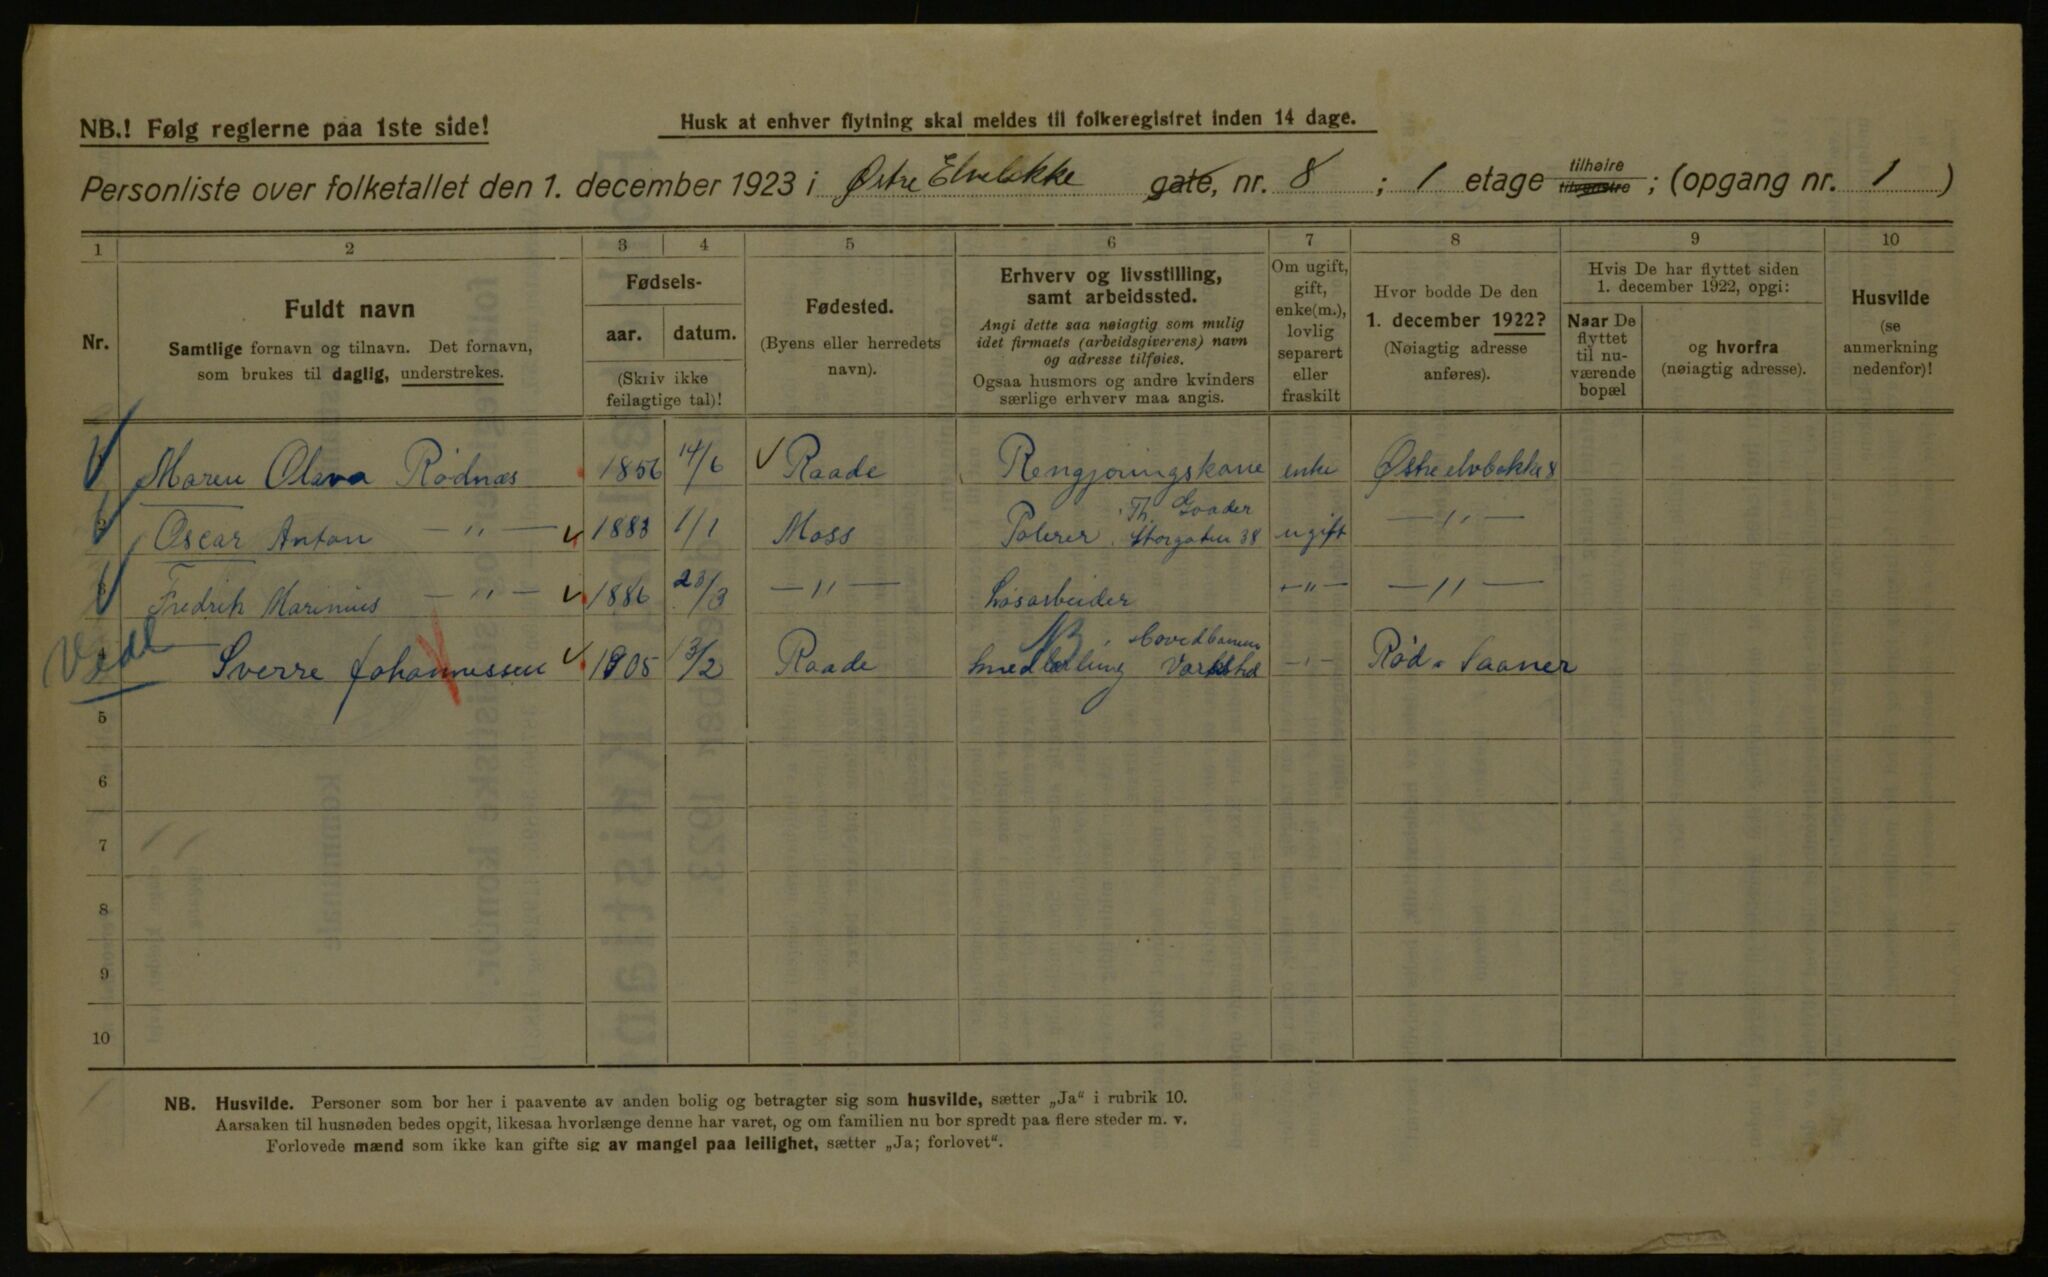 NB.! Følg reglerne paa 1ste side!
Husk at enhver flytning skal meldes til folkeregistret inden 14 dage.
Personliste over folketallet den 1. december 1923 i Østre Elvebakke gate, nr. 8 ; 1 etage tilhøire tilvenstre ; (opgang nr. 1 )
1 2 3 4 5 6 7 8 9 10
Nr.
Fuldt navn
Samtlige fornavn og tilnavn. Det fornavn,
som brukes til daglig, understrekes.
Fødsels-
aar. datum.
(Skriv ikke
feilagtige tal)!
Fødested.
(Byens eller herredets
navn).
Erhverv og livsstilling,
samt arbeidssted.
Angi dette saa nøiagtig som mulig
idet firmaets (arbeidsgiverens) navn
og adresse tilføies.
Ogsaa husmors og andre kvinders
særlige erhverv maa angis.
Om ugift,
gift,
enke(m.),
lovlig
separert
eller
fraskilt
Hvor bodde De den
1. december 1922?
(Nøiagtig adresse
anføres).
Hvis De har flyttet siden
1. december 1922, opgi:
Naar De
flyttet
til nu-
værende
bopæl
og hvorfra
(nøiagtig adresse).
Husvilde
(se
anmerkning
nedenfor)!
1 Maren Olava Rødnæs 1856 14/6 Raade Rengjøringskone enke Østre elvebakke 8
2 Oscar Anton —"— 1883 1/1 Moss Polerer Th. Storgaten 38 ugift —"—
3 Fredrik Marinius —"— 1886 23/3 —"— Løsarbeider —"— —"—
Sverre Johannessen 1905 13/2 Raade NB. Hovedbanens Smedlærling —"— Rød Saaner
5
6
7
8
9
10
NB. Husvilde. Personer som bor her i paavente av anden bolig og betragter sig som husvilde, sætter „Ja" i rubrik 10.
Aarsaken til husnøden bedes opgit, likesaa hvorlænge denne har varet, og om familien nu bor spredt paa flere steder m. v.
Forlovede mænd som ikke kan gifte sig av mangel paa leilighet, sætter „Ja; forlovet".